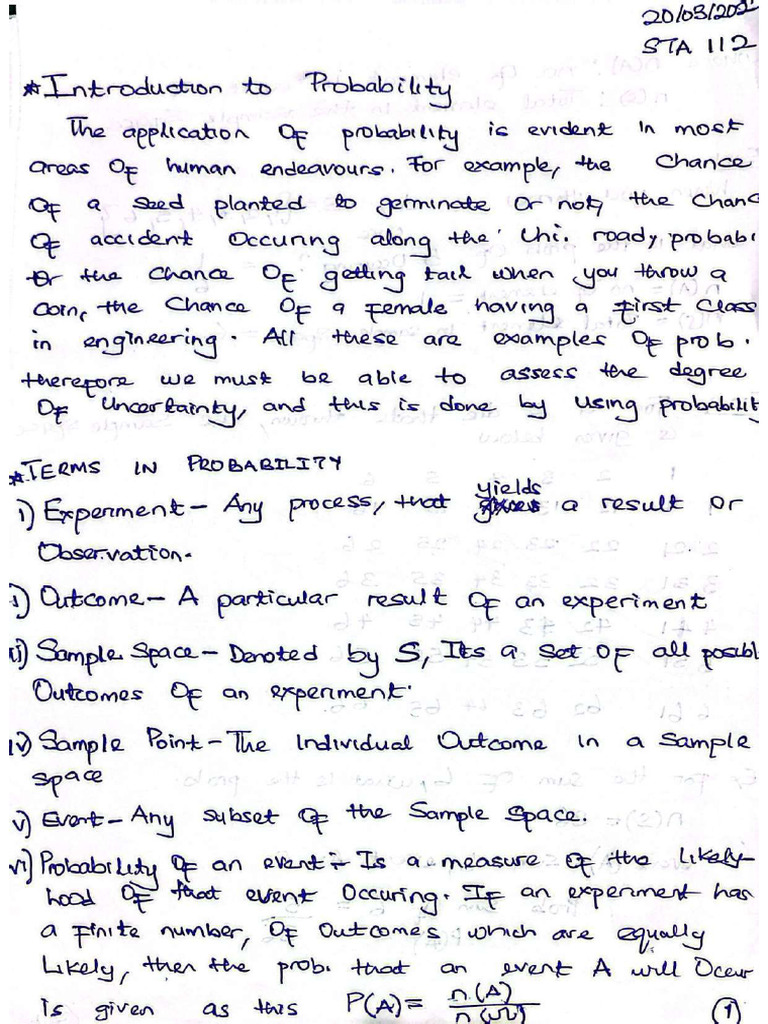 20/03/202
STA 112
*Introduction to Probability
The application of probability is evident in most
areas of human endeavours. For example, the Chance
of a seed planted to germinate or not, the Chanc
of accident Occuring along the Uni. road, probabi
or the chance of getting tail when you throw a
coin, the Chance of a female having a first class
in engineering. All these are examples of prob.
therefore we must be able to assess the degree
of Uncertainty, and this is done by using probabilit
*TERMS IN PROBABILITY
i) Experiment - Any process, that yields a result or
Observation.
i) Outcome - A particular result of an experiment
ii) Sample Space - Denoted by S, Its a set of all possibl
Outcomes of an experiment.
iv) Sample Point - The Individual Outcome in a Sample
space
v) Event - Any subset of the Sample Space.
vi) Probability of an event :- Is a measure of the Likely-
hood of that event Occuring. If an experiment has
a finite number, of outcomes which are equally
Likely, then the prob. that an event A will Occur
is given as this P(A) = n(A)
n
(1)